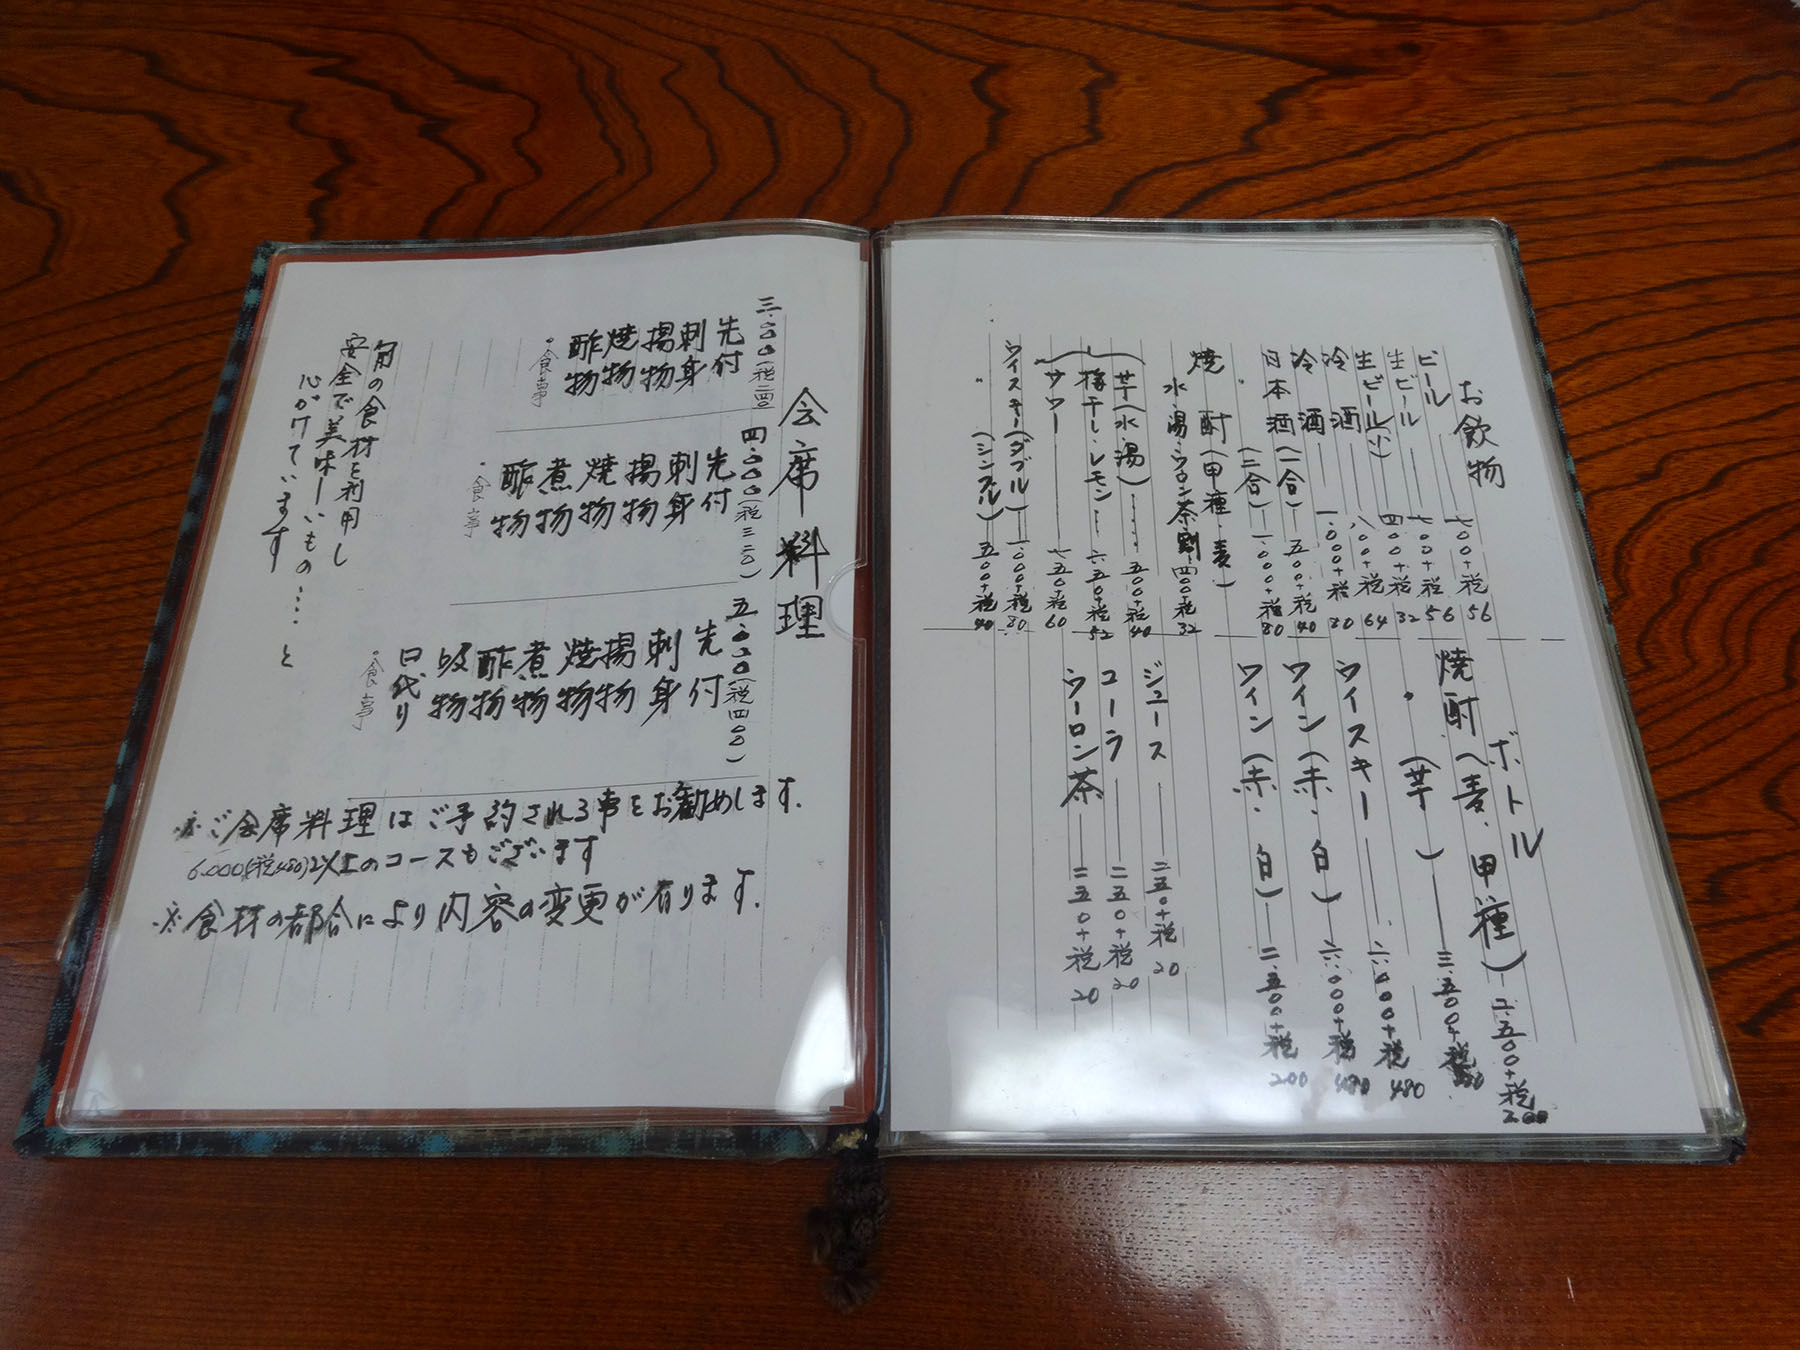 お飲物
ビール 七〇〇+税56
生ビール 七〇〇+税56
生ビール(小) 四〇〇+税32
冷酒 八〇〇+税64
冷酒 一.〇〇〇+税80
日本酒(一合) 五〇〇+税40
(二合) 一.〇〇〇+税80
焼酎(甲種・麦)
水・湯・ウロン茶割 四〇〇+税32
芋(水湯) 五〇〇+税40
梅干し・レモン 六五〇+税52
サワー 七五〇+税60
ウイスキー(ダブル) 一.〇〇〇+税80
(シングル) 五〇〇+税40
ボトル
焼酎(麦・甲種) 二.五〇〇+税200
〃(芋) 三.五〇〇+税
ウイスキー 六.〇〇〇+税480
ワイン(赤・白) 六.〇〇〇+税480
ワイン(赤・白) 二.五〇〇+税200
ジュース 二五〇+税20
コーラ 二五〇+税20
ウーロン茶 二五〇+税20
会席料理
三.〇〇〇(税二四〇)
先付
刺身
揚物
焼物
酢物
・食事
四.〇〇〇(税三二〇)
先付
刺身
揚物
焼物
煮物
酢物
・食事
五.〇〇〇(税四〇〇)
先付
刺身
揚物
焼物
煮物
酢物
吸物
口代り
・食事
旬の食材を利用し
安全で美味しいもの……と
心がけています
※ご会席料理はご予約される事をお勧めします.
6.000(税480)以上のコースもございます
※食材の都合により内容の変更が有ります.